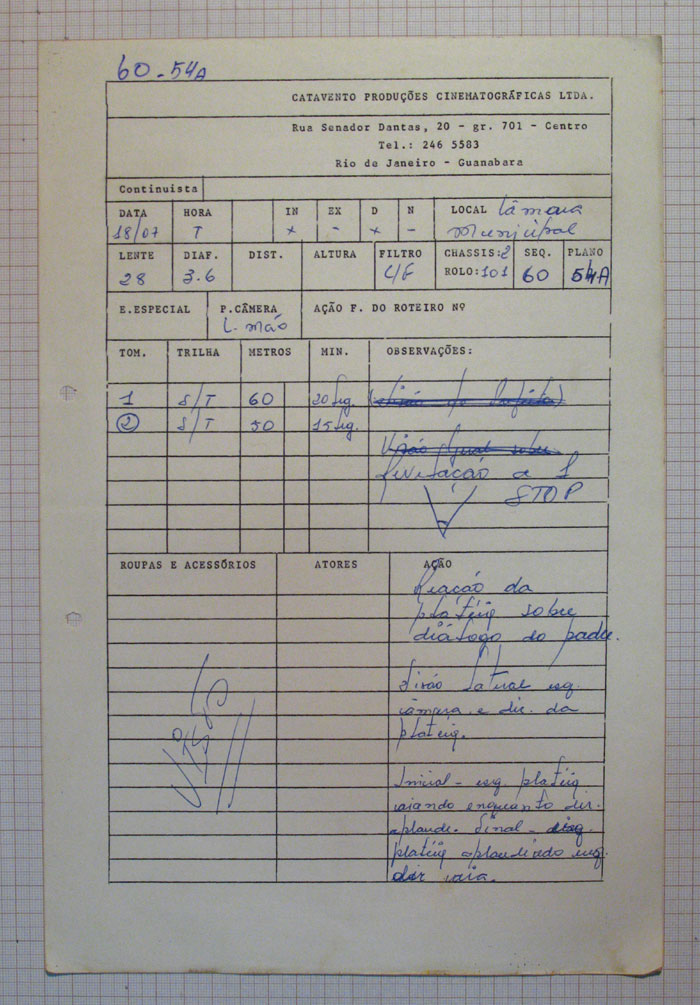 60-54A
CATAVENTO PRODUÇÕES CINEMATOGRÁFICAS LTDA.
Rua Senador Dantas, 20 - gr. 701 - Centro
Tel.: 246 5583
Rio de Janeiro - Guanabara
Continuista
DATA HORA IN EX D N LOCAL Câmara
18/07 T + - + - Municipal
LENTE DIAF. DIST. ALTURA FILTRO CHASSIS:2 SEQ. PLANO
28 3.6 C/F ROLO:101 60 54A
E.ESPECIAL P.CÂMERA AÇÃO F. DO ROTEIRO Nº
C. mão
TOM. TRILHA METROS MIN. OBSERVAÇÕES:
1 S/T 60 20 seg.
2 S/T 50 15 seg.
a 1
STOP
ROUPAS E ACESSÓRIOS ATORES AÇÃO
Reação da
platéia sobre
diálogo do padre.
lateral esq.
câmara e dir. da
platéia.
Inicial - esq. platéia
vaiando enquanto dir.
aplaude. Final -
platéia aplaudindo esq.
dir vaia.